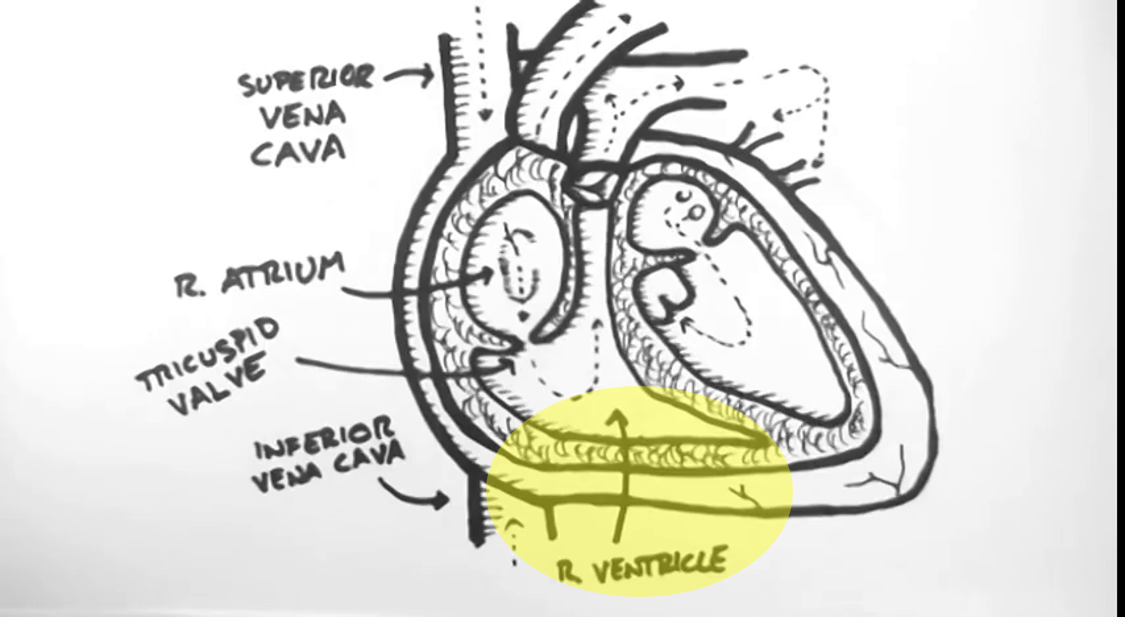 SUPERIOR
VENA
CAVA
R. ATRIUM
TRICUSPID
VALVE
INFERIOR
VENA CAVA
R VENTRICLE